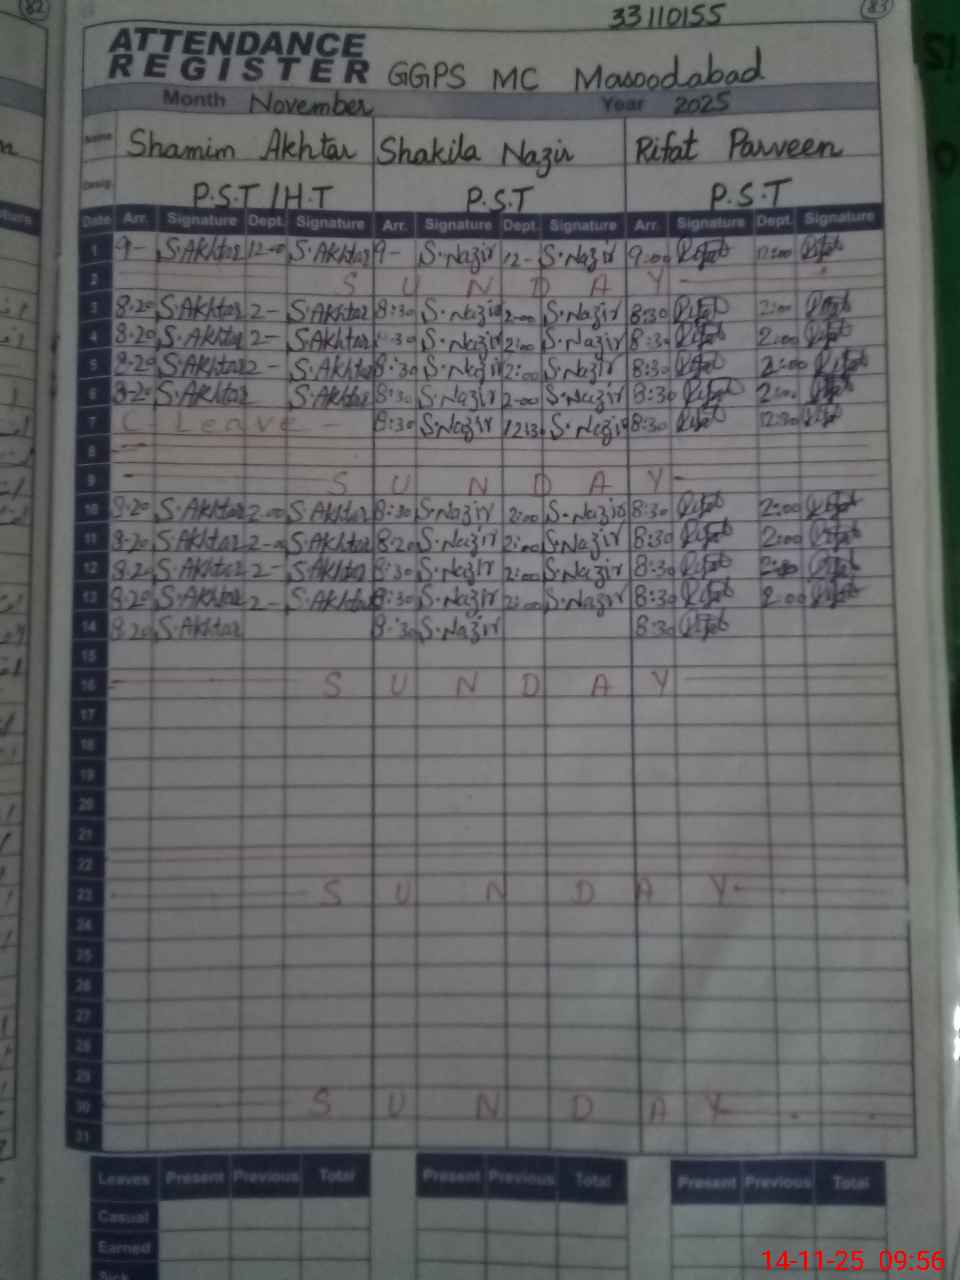 82
33110155
83
ATTENDANCE
REGISTER GGPS MC Masoodabad
Month November Year 2025
Name Shamim Akhtar Shakila Nazir Rifat Parveen
Desig. P.S.T/H.T P.S.T P.S.T
Date Arr. Signature Dept. Signature Arr. Signature Dept. Signature Arr. Signature Dept. Signature
1 9- S.Akhtar 12-00 S.Akhtar 9- S.Nazir 12- S.Nazir 9:00 Rifat 12:00 Rifat
2 S U N D A Y
3 8.20 S.Akhtar 2- S.Akhtar 8:30 S.Nazir 2-00 S.Nazir 8:30 Rifat 2:00 Rifat
4 8.20 S.Akhtar 2- S.Akhtar :30 S.Nazir 2:00 S.Nazir 8:30 Rifat 2:00 Rifat
5 8.20 S.Akhtar 2- S.Akhtar 8:30 S.Nazir 2:00 S.Nazir 8:30 Rifat 2:00 Rifat
6 8.20 S.Akhtar S.Akhtar 8:30 S.Nazir 2-00 S.Nazir 8:30 Rifat 2:00 Rifat
7 C- Leave - 8:30 S.Nazir 12:30 S.Nazir 8:30 Rifat 12:30 Rifat
8
9 S U N D A Y
10 8.20 S.Akhtar 2-00 S.Akhtar 8:30 S.Nazir 2:00 S.Nazir 8:30 Rifat 2:00 Rifat
11 8.20 S.Akhtar 2-00 S.Akhtar 8:20 S.Nazir 2:00 S.Nazir 8:30 Rifat 2:00 Rifat
12 8.2 S.Akhtar 2- S.Akhtar 8:30 S.Nazir 2:00 S.Nazir 8:30 Rifat Rifat
13 8.20 S.Akhtar 2- S.Akhtar 8:30 S.Nazir 2:00 S.Nazir 8:30 Rifat 2:00 Rifat
14 8.20 S.Akhtar 8:30 S.Nazir 8:30 Rifat
15
16 S U N D A Y
17
18
19
20
21
22
23 S U N D A Y
24
25
26
27
28
29
30 S U N D A Y
31
Leaves Present Previous Total Present Previous Total Present Previous Total
Casual
Earned
Sick
14-11-25 09:56